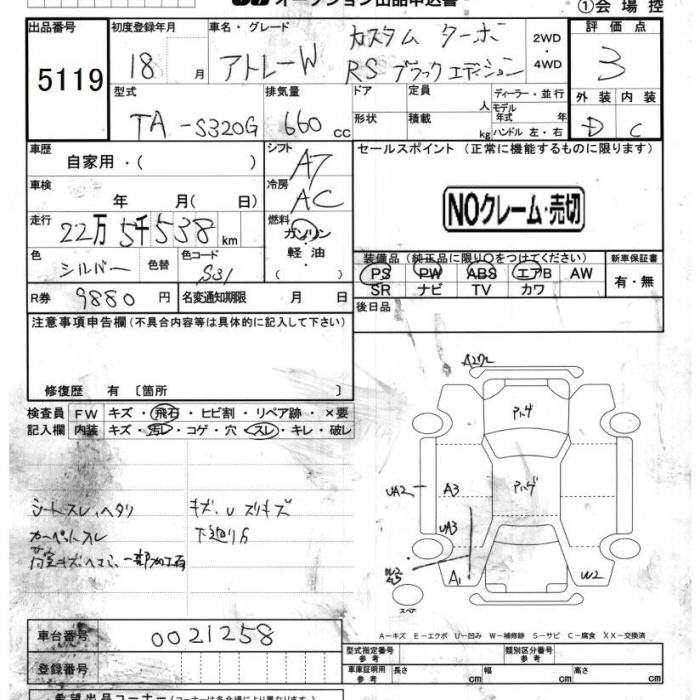 オークション出品申込書
①会 場 控
出品番号
5119
初度登録年月
18 月
車名・グレード
アトレーW カスタム ターボ
RS ブラックエディション
2WD
・
4WD
評 価 点
3
外 装 内 装
D C
型式
TA -S320G
排気量
660 cc
ドア
形状
定員
人
積載
kg
ディーラー・並行
モデル
年式 年
ハンドル 左・右
車歴
自家用・( )
シフト
A7
セールスポイント (正常に機能するものに限ります)
NOクレーム・売切
車検
年 月( 日)
冷房
AC
走行
22万 5千 538 km
燃料
ガソリン
・
軽 油
( ・ )
色
シルバー
色替
色コード
S31
装備品 (純正品に限り○をつけてください)
PS PW ABS エアB AW
SR ナビ TV カワ
新車保証書
有・無
R券
9880 円
名変通知期限 月 日
後日品
注意事項申告欄 (不具合内容等は具体的に記入して下さい)
修復歴 有 〔箇所 〕
検査員
記入欄
FW キズ・飛石・ヒビ割・リペア跡・×要
内装 キズ・汚レ・コゲ・穴・スレ・キレ・破レ
シートスレ、ヘタリ
カーペットスレ
キズ、U スリキズ
下廻りS
A2
アトゲ
アトゲ
UA2
A3
UA3
A1
W2
スペア
A−キズ E−エクボ U−凹み W−補修跡 S−サビ C−腐食 XX−交換済
車台番号
0021258
登録番号
型式指定番号
参 考
類別区分番号
参 考
車庫証明用
参 考
長さ cm
幅 cm
高さ cm
希望出品コーナー (コーナーは各会場により異なります)